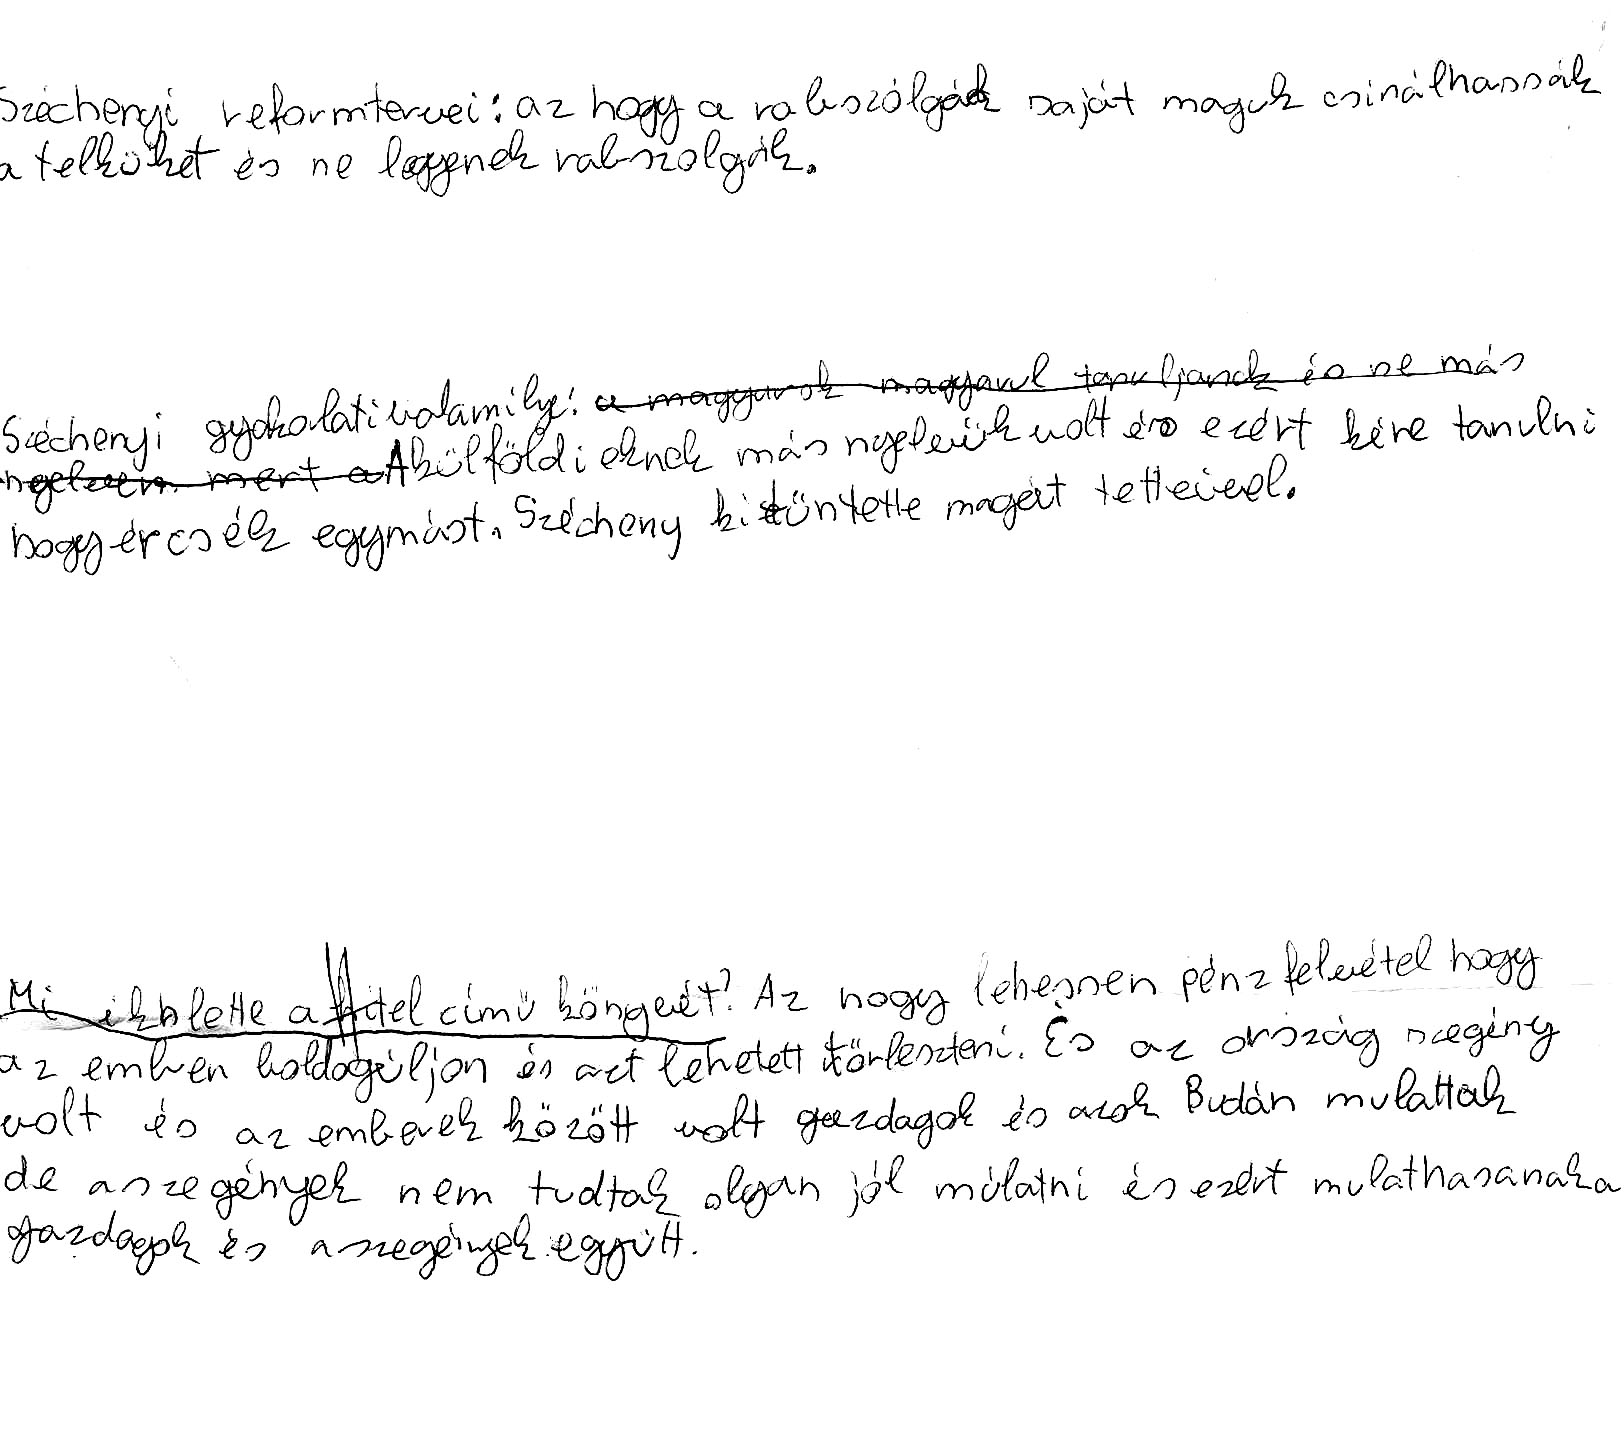 Széchenyi reformtervei: az hogy a rabszólgák saját maguk csinálhassák
a telküket és ne legyenek rabszolgák.
Széchenyi gyokolati valamilye: a magyarok magyarul tanuljanak és ne más
nyelven mert a A külföldi eknek más nyelvük volt és ezért kéne tanulni
hogy ércsék egymást. Szécheny kitüntette magát tetteivel.
Mi ihlette a Hitel című könyvét? Az hogy lehessen pénz felvétel hogy
az emben boldogúljon és azt lehetett törleszteni. És az ország szegény
volt és az emberek között volt gazdagok és azok Budán mulattak
de a szegények nem tudtak olyan jól múlatni és ezért mulathasanak a
gazdagok és a szegények együtt.